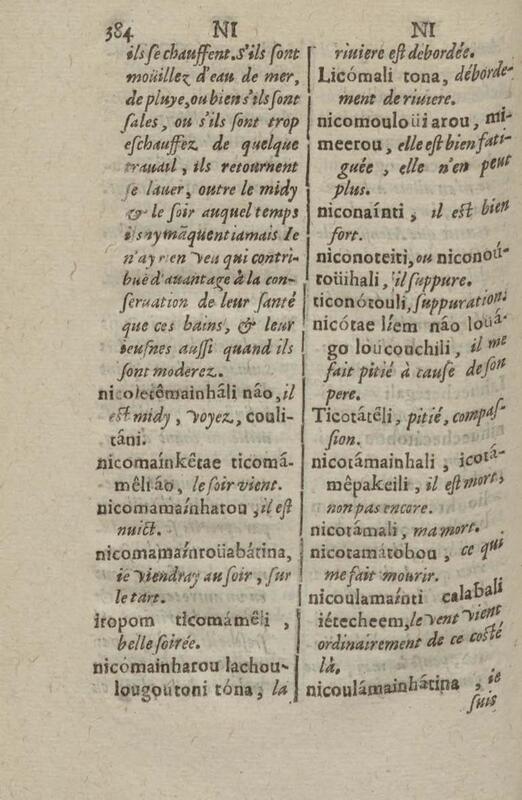 384 NI NI
ils se chauffent. S'ils sont
moüillez d'eau de mer,
de pluye, ou bien s'ils sont
sales, ou s'ils sont trop
eschauffez de quelque
trauail, ils retournent
se lauer, outre le midy
& le soir auquel temps
ils ny mãquent iamais Ie
n'ay rien veu qui contri-
buë d'auantage à la con-
seruation de leur santé
que ces bains, & leur
ieusnes aussi quand ils
sont moderez.
nicoletêmainháli náo, il
est midy, voyez, couli-
táni.
nicomaínkêtae ticomá-
mêlíáo, le soir vient.
nicomamaínharou, il est
nuict.
nicomamaínroüabátina,
ie viendray au soir, sur
le tart.
itopom ticomámêli,
belle soirée.
nicómainharou lachou-
lougoutoni tóna, la
riuiere est débordée.
Licómali tona, déborde-
ment de riuiere.
nicomouloüiarou, mi-
meerou, elle est bien fati-
guée, elle n'en peut
plus.
niconaínti, il est bien
fort.
niconoteiti, ou niconoú-
roüihali, il suppure.
ticonótouli, suppuration.
nicótae líem náo louá-
go loucouchili, il me
fait pitié à cause de son
pere.
Ticotátêli, pitié, compas-
sion.
nicotámainhali, icotá-
mêpakeili, il est mort,
non pas encore.
nicotámali, ma mort.
nicotamátobou, ce qui
me fait mourir.
nicoulamaínti calabali
iétecheem, le vent vient
ordinairement de ce costé
là.
nicoulámainhátina, ie
suis